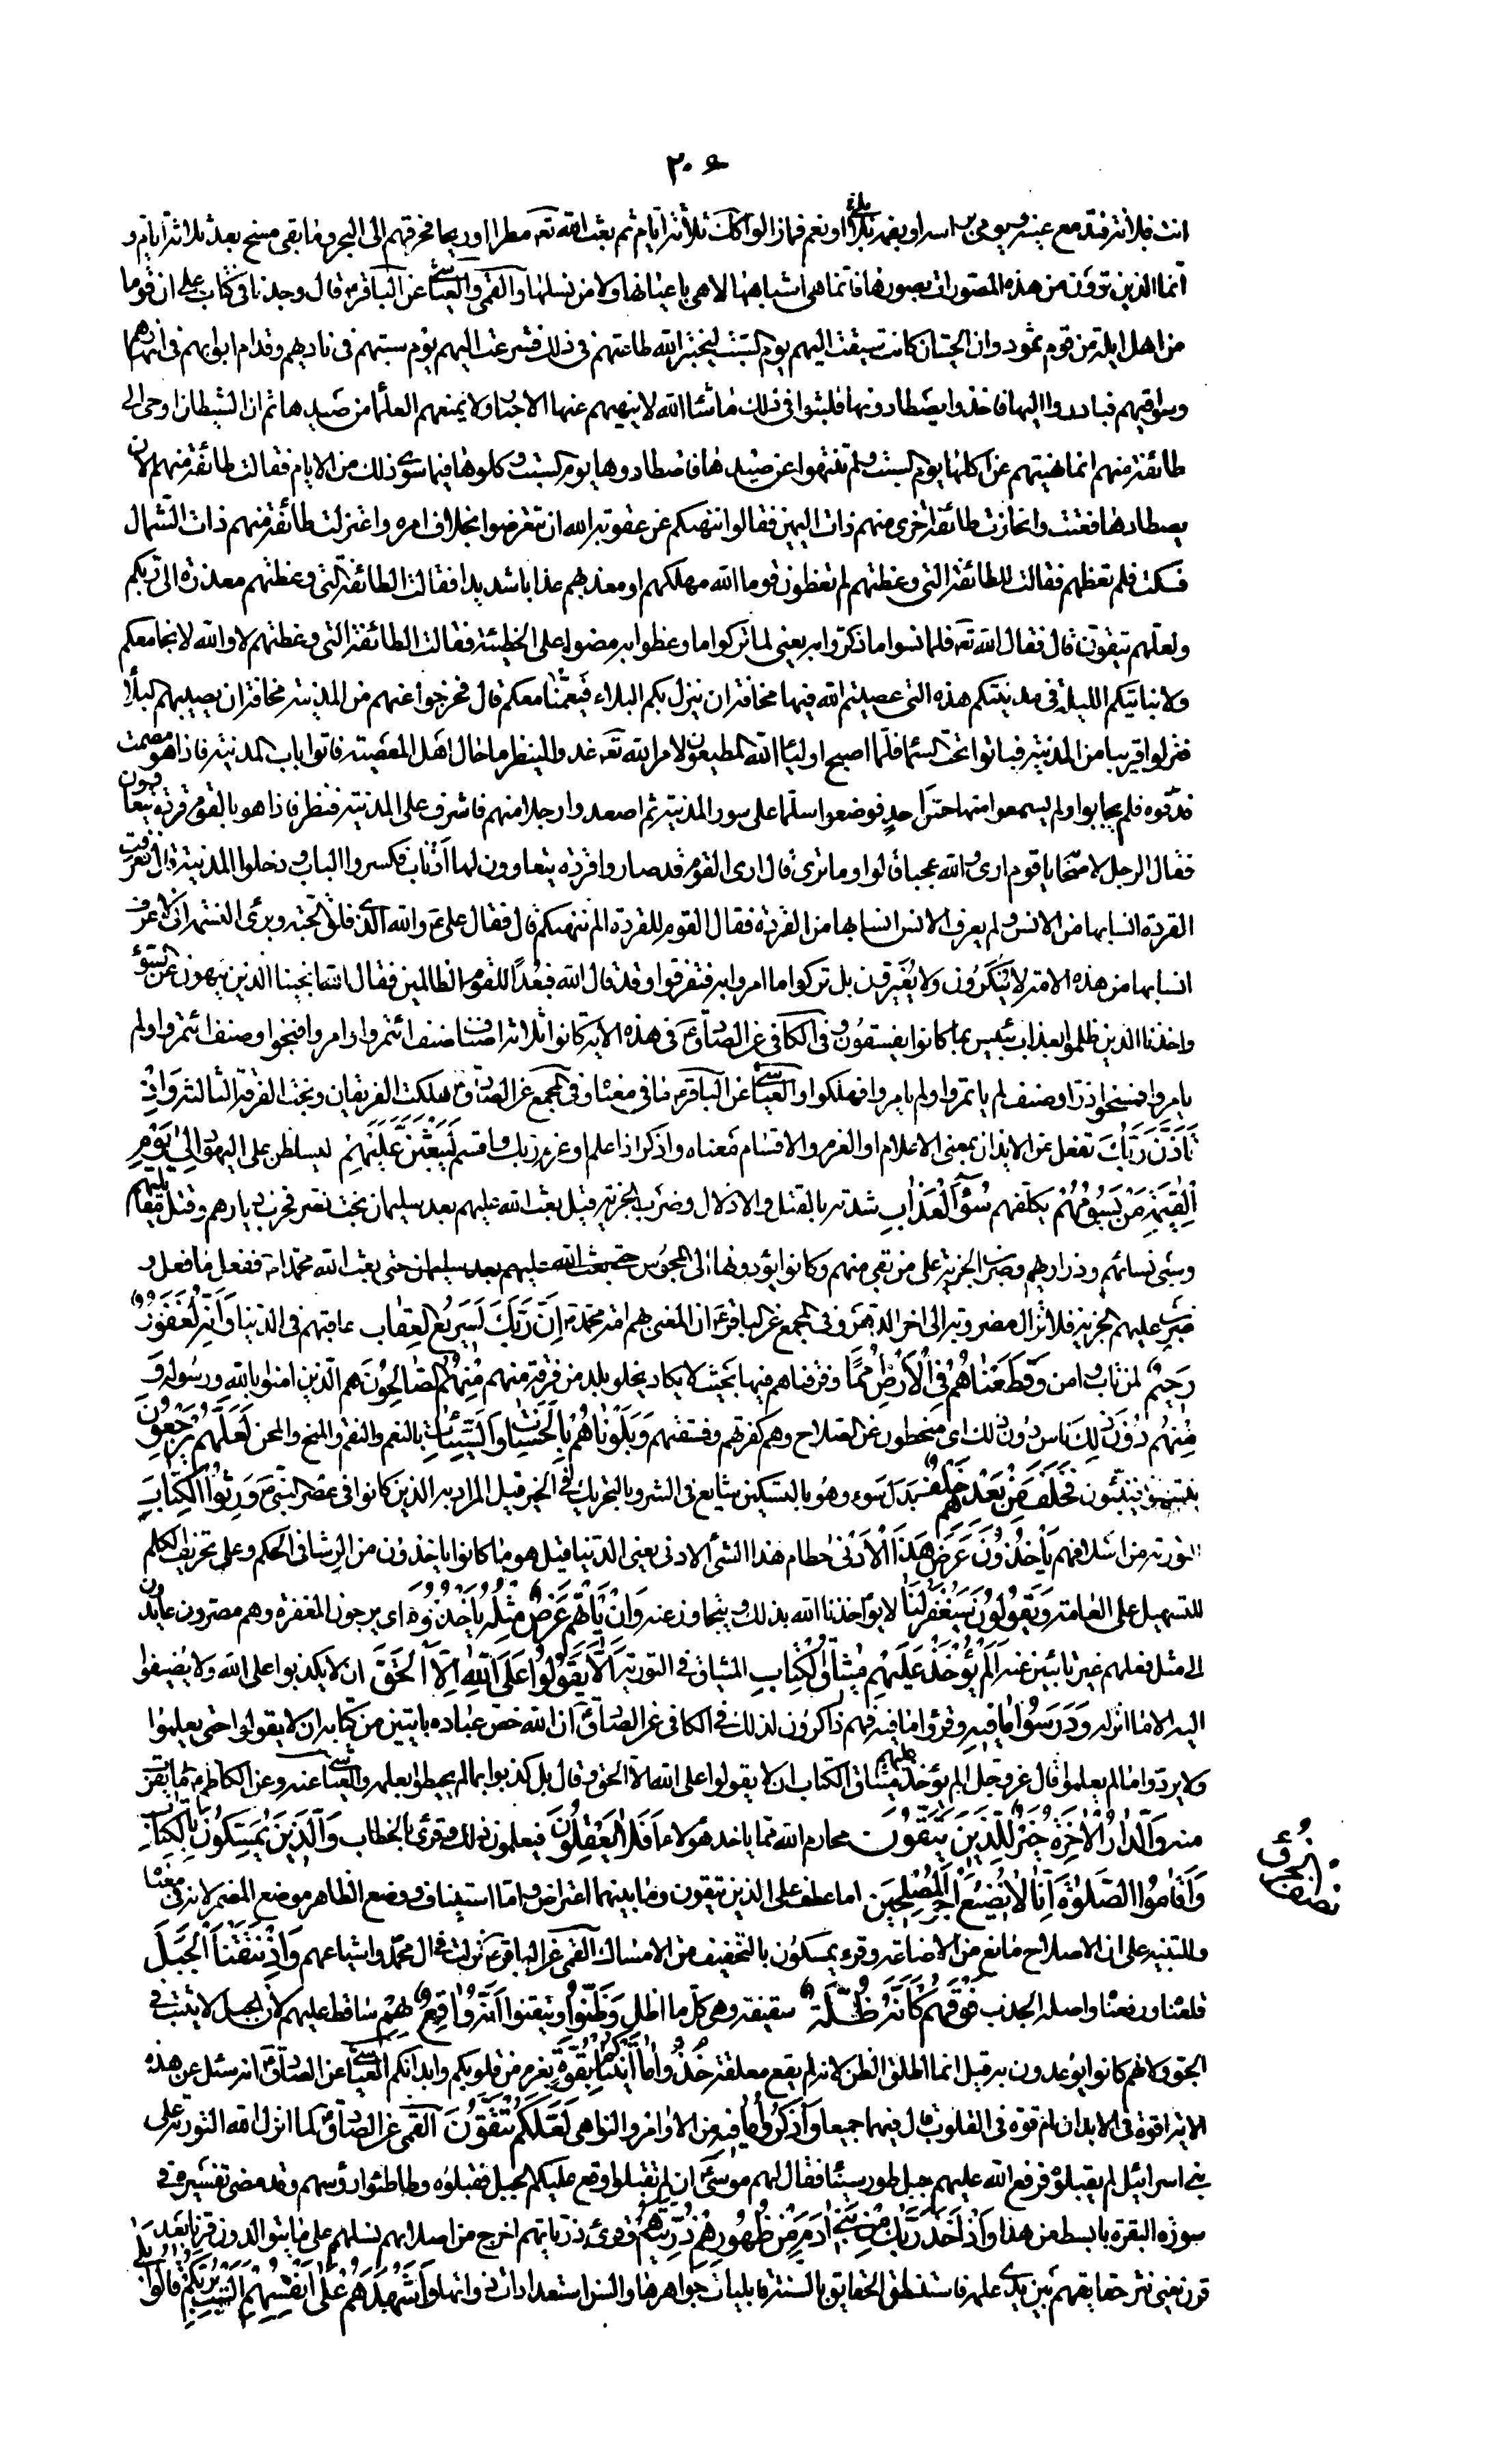 ٢٠٥
انما الذين ترون من هذه المصورات بصورها فانما هي اشباهها لا هي باعيانها ولا من نسلها والقمي والعياشي عن الباقر قال وجدنا في كتاب علي ان قوما
من اهل ايلة من قوم ثمود وان الحيتان كانت سبقت اليهم يوم السبت ليختبر الله طاعتهم في ذلك فشرعت اليهم يوم سبتهم في ناديهم وقدام ابوابهم في انهارهم
وسواقيهم فبادروا اليها فاخذوا يصطادونها فلبثوا في ذلك ما شاء الله لا ينهيهم عنها الاحبار ولا يمنعهم العلماء من صيدها ثم ان الشيطان اوحى الى
طائفة منهم انما نهيتم عن اكلها يوم السبت ولم تنهوا عن صيدها فاصطادوها يوم السبت وكلوها فيما سوى ذلك من الايام فقالت طائفة منهم الان
يصطادها فعتت وانحازت طائفة اخرى منهم ذات اليمين فقالوا ننهيكم عن عقوبة الله ان تتعرضوا بخلاف امره واعتزلت طائفة منهم ذات الشمال
فسكتت فلم تعظهم فقالت للطائفة التي وعظتهم لم تعظون قوما الله مهلكهم او معذبهم عذابا شديدا فقالت الطائفة التي وعظتهم معذرة الى ربكم
ولعلهم يتقون قال فقال الله تع فلما نسوا ما ذكروا به يعني لما تركوا ما وعظوا به مضوا على الخطيئة فقالت الطائفة التي وعظتهم لا والله لا نجامعكم
ولا نبايتكم الليلة في مدينتكم هذه التي عصيتم الله فيها مخافة ان ينزل بكم البلاء فيعمنا معكم قال فخرجوا عنهم من المدينة مخافة ان يصيبهم البلاء
فنزلوا قريبا من المدينة فباتوا تحت السماء فلما اصبح اولياء الله المطيعون لامر الله تع غدوا لينظروا ما حال اهل المعصية فاتوا باب المدينة فاذا هو مصمت
فدقوه فلم يجابوا ولم يسمعوا منها حس احد فوضعوا سلما على سور المدينة ثم اصعدوا رجلا منهم فاشرف على المدينة فنظر فاذا هو بالقوم قردة يتعاوون
فقال الرجل لاصحابه يا قوم ارى والله عجبا قالوا وما ترى قال ارى القوم قد صاروا قردة يتعاوون لها اذناب فكسروا الباب ودخلوا المدينة قال فعرفت
القردة انسابها من الانس ولم يعرف الانس انسابها من القردة فقال القوم للقردة الم ننهكم قال فقال علي ع والله الذي فلق الحبة وبرئ النسمة اني لاعرف
انسابها من هذه الامة لا ينكرون ولا يغيرون بل تركوا ما امروا به فتفرقوا وقد قال الله فبعدا للقوم الظالمين فقال الله انجينا الذين ينهون عن السوء
واخذنا الذين ظلموا بعذاب بئيس بما كانوا يفسقون وفي الكافي عن الصادق ع في هذه الاية كانوا ثلاثة اصناف صنف ائتمروا وامروا فنجوا وصنف ائتمروا ولم
يامروا فمسخوا ذرا وصنف لم ياتمروا ولم يامروا فهلكوا والعياشي عن الباقر ما في معناه وفي المجمع عن الصادق هلكت الفرقتان ونجت الفرقة الثالثة واذ
تاذن ربك تفعل من الايذان بمعنى الاعلام او العزم والاقسام معناه واذكر اذ اعلم او عزم ربك واقسم ليبعثن عليهم ليسلطن على اليهود الى يوم
القيمة من يسومهم يكلفهم سوء العذاب شدته بالقتل والاذلال وضرب الجزية قيل بعث الله عليهم بعد سليمان بخت نصر فخرب ديارهم وقتل مقاتليهم
وسبى نسائهم وذراريهم وضرب الجزية على من بقي منهم وكانوا يؤدونها الى المجوس حتى بعث الله محمدا ففعل ما فعل و
ضرب عليهم الجزية فلا تزال مضروبة الى اخر الدهر وفي المجمع عن الباقر ع ان المعني بهم امة محمد ان ربك لسريع العقاب عاقبهم في الدنيا وانه لغفور
رحيم لمن تاب وامن وقطعناهم في الارض امما وفرقناهم فيها بحيث لا يكاد يخلو بلد من فرقة منهم منهم الصالحون هم الذين امنوا بالله ورسوله و
منهم دون ذلك ناس دون ذلك اي منحطون عن الصلاح وهم كفرتهم وفسقتهم وبلوناهم بالحسنات والسيئات بالنعم والنقم والمنح والمحن لعلهم يرجعون
ينتبهون فينيبون فخلف من بعدهم خلف بدل سوء وهو بالتسكين شايع في الشر وبالتحريك في الخير قيل المراد به الذين كانوا في عصر النبي ورثوا الكتاب
التورية من اسلافهم ياخذون عرض هذا الادنى حطام هذا الشيء الادنى يعني الدنيا قيل هو ما كانوا ياخذون من الرشا في الحكم وعلى تحريف الكلم
للتسهيل على العامة ويقولون سيغفر لنا لا يؤاخذنا الله بذلك ويتجاوز عنه وان ياتهم عرض مثله ياخذوه اي يرجون المغفرة وهم مصرون عايدون
الى مثل فعلهم غير تائبين عنه الم يؤخذ عليهم ميثاق الكتاب الميثاق في التورية الا يقولوا على الله الا الحق ان لا يكذبوا على الله ولا يضيفوا
اليه الا ما انزله ودرسوا ما فيه وقرؤا ما فيه فهم ذاكرون لذلك في الكافي عن الصادق ان الله خص عباده بايتين من كتابه ان لا يقولوا حتى يعلموا
ولا يردوا ما لم يعلموا قال عز وجل الم يؤخذ عليهم ميثاق الكتاب ان لا يقولوا على الله الا الحق وقال بل كذبوا بما لم يحيطوا بعلمه والعياشي عنه وعن الكاظم ما يقرب
منه والدار الاخرة خير للذين يتقون محارم الله مما ياخذ هؤلاء افلا يعقلون فيعلمون ذلك وقرئ بالخطاب والذين يمسكون بالكتاب
واقاموا الصلوة انا لا نضيع اجر المصلحين اما عطف على الذين يتقون وما بينهما اعتراض واما استيناف ووضع الظاهر موضع المضمر لانه في معناه
وللتنبيه على ان الاصلاح مانع من الاضاعة وقرئ يمسكون بالتخفيف من الامساك القمي عن الباقر ع نزلت في ال محمد واشياعهم واذ نتقنا الجبل
قلعناه ورفعناه واصله الجذب فوقهم كانه ظلة سقيفة وهي كل ما اظل وظنوا وتيقنوا انه واقع بهم ساقط عليهم لان الجبل لا يثبت في
الجو ولانهم كانوا يوعدون به قيل انما اطلق الظن لانه لم يقع معلقة خذوا ما اتيناكم بقوة بعزم من قلوبكم وابدانكم العياشي عن الصادق انه سئل عن هذه
الاية اقوة في الابدان ام قوة في القلوب قال فيهما جميعا واذكروا ما فيه من الاوامر والنواهي لعلكم تتقون القمي عن الصادق لما انزل الله التورية على
بني اسرائيل لم يقبلوه فرفع الله عليهم جبل طور سيناء فقال لهم موسى ان لم تقبلوا وقع عليكم الجبل فقبلوه وطاطئوا رؤسهم وقد مضى تفسيره في
سورة البقرة بابسط من هذا واذ اخذ ربك من بني ادم من ظهورهم ذريتهم وقرئ ذرياتهم اخرج من اصلابهم نسلهم على ما يتوالدون قرنا بعد
قرن يعني نثر حقايقهم بين يدي علمه فاستنطق الحقايق بالسنة قابليات جواهرها والسن استعدادات ذواتها واشهدهم على انفسهم الست بربكم قالوا بلى
نصف الجزء